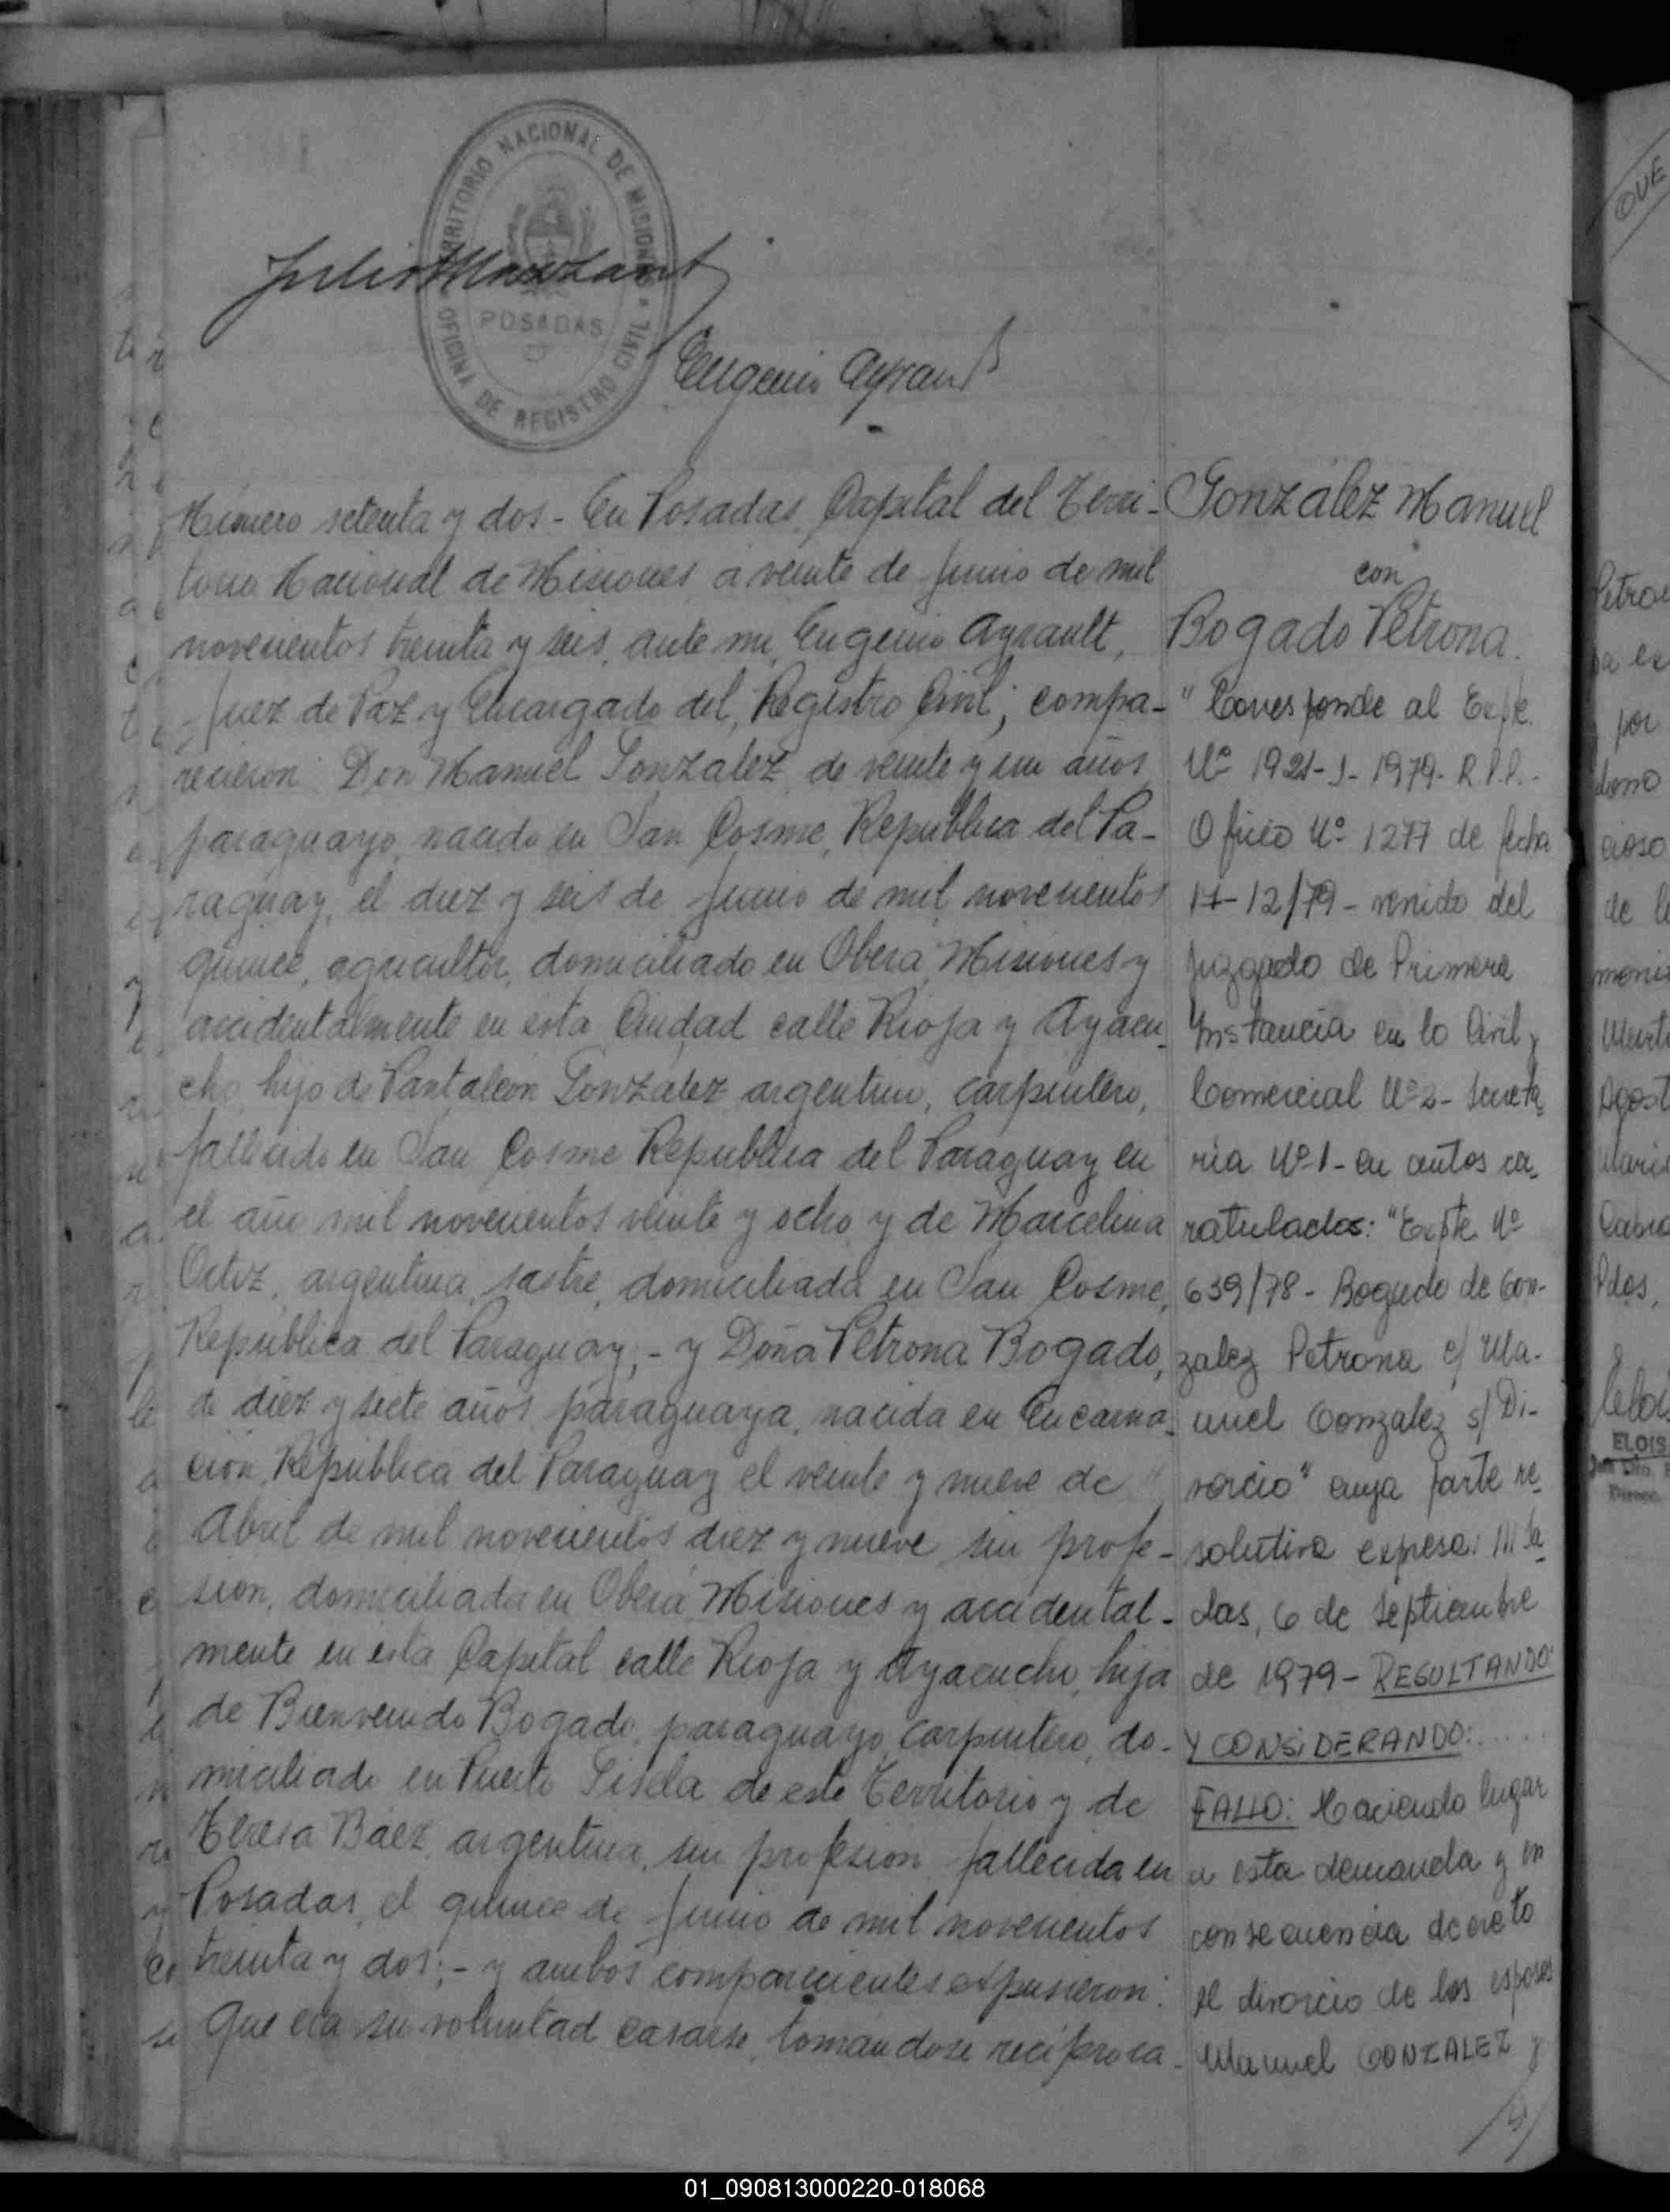 TERRITORIO NACIONAL DE MISIONES
OFICINA DE REGISTRO CIVIL
POSADAS
Eugenio Ayrault
Número setenta y dos - En Posadas, Capital del Terri-
torio Nacional de Misiones, a veinte de Junio de mil
novecientos treinta y seis, ante mi, Eugenio Ayrault,
Juez de Paz y Encargado del Registro Civil; compa-
recieron: Don Manuel Gonzalez, de veinte y un años
paraguayo, nacido en San Cosme, República del Pa-
raguay, el diez y seis de Junio de mil novecientos
quince, agricultor, domiciliado en Oberá, Misiones y
accidentalmente en esta Ciudad calle Rioja y Ayacu-
cho, hijo de Pantaleon Gonzalez argentino, carpintero,
fallecido en San Cosme República del Paraguay en
el año mil novecientos veinte y ocho y de Marcelina
Ortiz, argentina, sastre, domiciliada en San Cosme,
República del Paraguay; - y Doña Petrona Bogado,
de diez y siete años, paraguaya, nacida en Encarna-
ción, República del Paraguay el veinte y nueve de
Abril de mil novecientos diez y nueve, sin profe-
sion, domiciliada en Oberá, Misiones y accidental-
mente en esta Capital calle Rioja y Ayacucho, hija
de Bienvenido Bogado, paraguayo, carpintero, do-
miciliado en Puerto Gisela de este Territorio y de
Teresa Báez, argentina, sin profesion, fallecida en
Posadas, el quince de Junio de mil novecientos
treinta y dos; - y ambos comparecientes expusieron:
Que era su voluntad casarse, tomandose recíproca-
González Manuel
con
Bogado Petrona.
"Corresponde al Expte.
Nº 1921-J-1979- R.P.P.-
Oficio Nº 1277 de fecha
17-12/79 - venido del
Juzgado de Primera
Instancia en lo Civil y
Comercial Nº 2 - Secreta-
ría Nº 1 - en autos ca-
ratulados: "Expte Nº
639/78 - Bogado de Gon-
zalez Petrona c/ Ma-
nuel Gonzalez s/ Di-
vorcio" cuya parte re-
solutiva expresa:
das, 6 de Septiembre
de 1979 - RESULTANDO:
Y CONSIDERANDO: .....
FALLO: Haciendo lugar
a esta demanda y en
consecuencia decreto
el divorcio de los esposos
Manuel GONZALEZ y
QUE
por
de
ELOIS
01_090813000220-018068